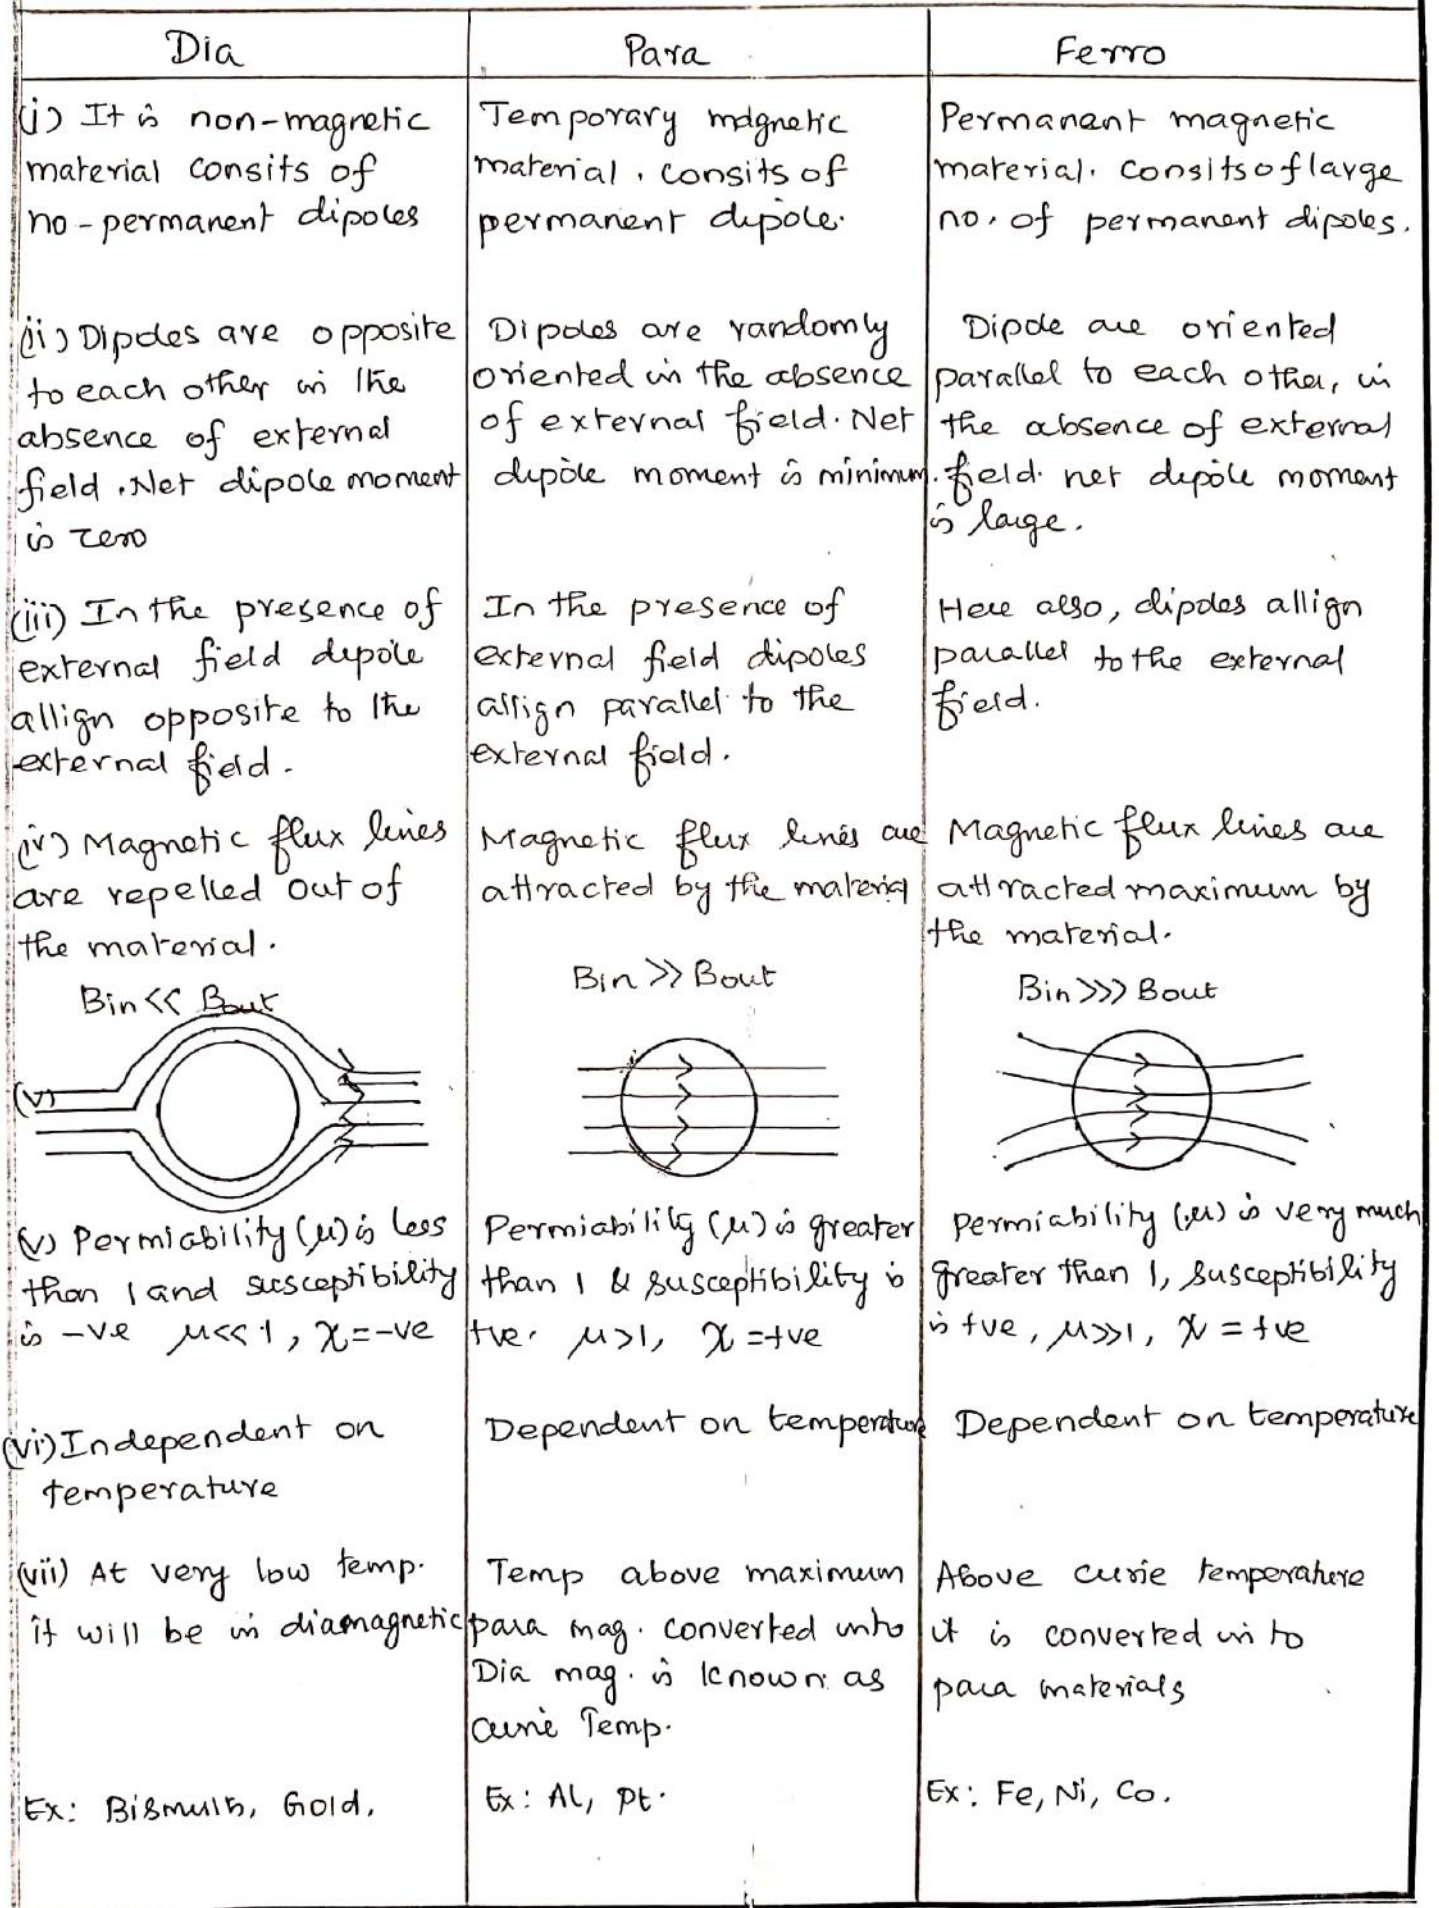 Dia
Para
Ferro
(i) It is non-magnetic
material consits of
no-permanent dipoles
Temporary magnetic
material. consits of
permanent dipole.
Permanant magnetic
material. Consits of large
no. of permanent dipoles.
(ii) Dipoles are opposite
to each other in the
absence of external
field. Net dipole moment
is zero
Dipoles are randomly
oriented in the absence
of external field. Net
dipole moment is minimum.
Dipole are oriented
parallel to each other, in
the absence of external
field. net dipole moment
is large.
(iii) In the presence of
external field dipole
allign opposite to the
external field.
In the presence of
external field dipoles
allign parallel to the
external field.
Here also, dipoles allign
parallel to the external
field.
(iv) Magnetic flux lines
are repelled out of
the material.
Bin << Bout
Magnetic flux lines are
attracted by the material
Bin >> Bout
Magnetic flux lines are
attracted maximum by
the material.
Bin >>> Bout
(v)
(v) Permiability (μ) is less
than 1 and susceptibility
is -ve μ<<1, χ=-ve
Permiability (μ) is greater
than 1 & susceptibility is
+ve. μ>1, χ=+ve
Permiability (μ) is very much
greater than 1, susceptibility
is +ve, μ>>1, χ=+ve
(vi) Independent on
temperature
Dependent on temperature
Dependent on temperature
(vii) At very low temp.
it will be in diamagnetic
Temp above maximum
para mag. converted into
Dia mag. is known as
curie Temp.
Above curie temperature
it is converted in to
para materials
Ex: Bismuth, Gold.
Ex: Al, Pt.
Ex: Fe, Ni, Co.